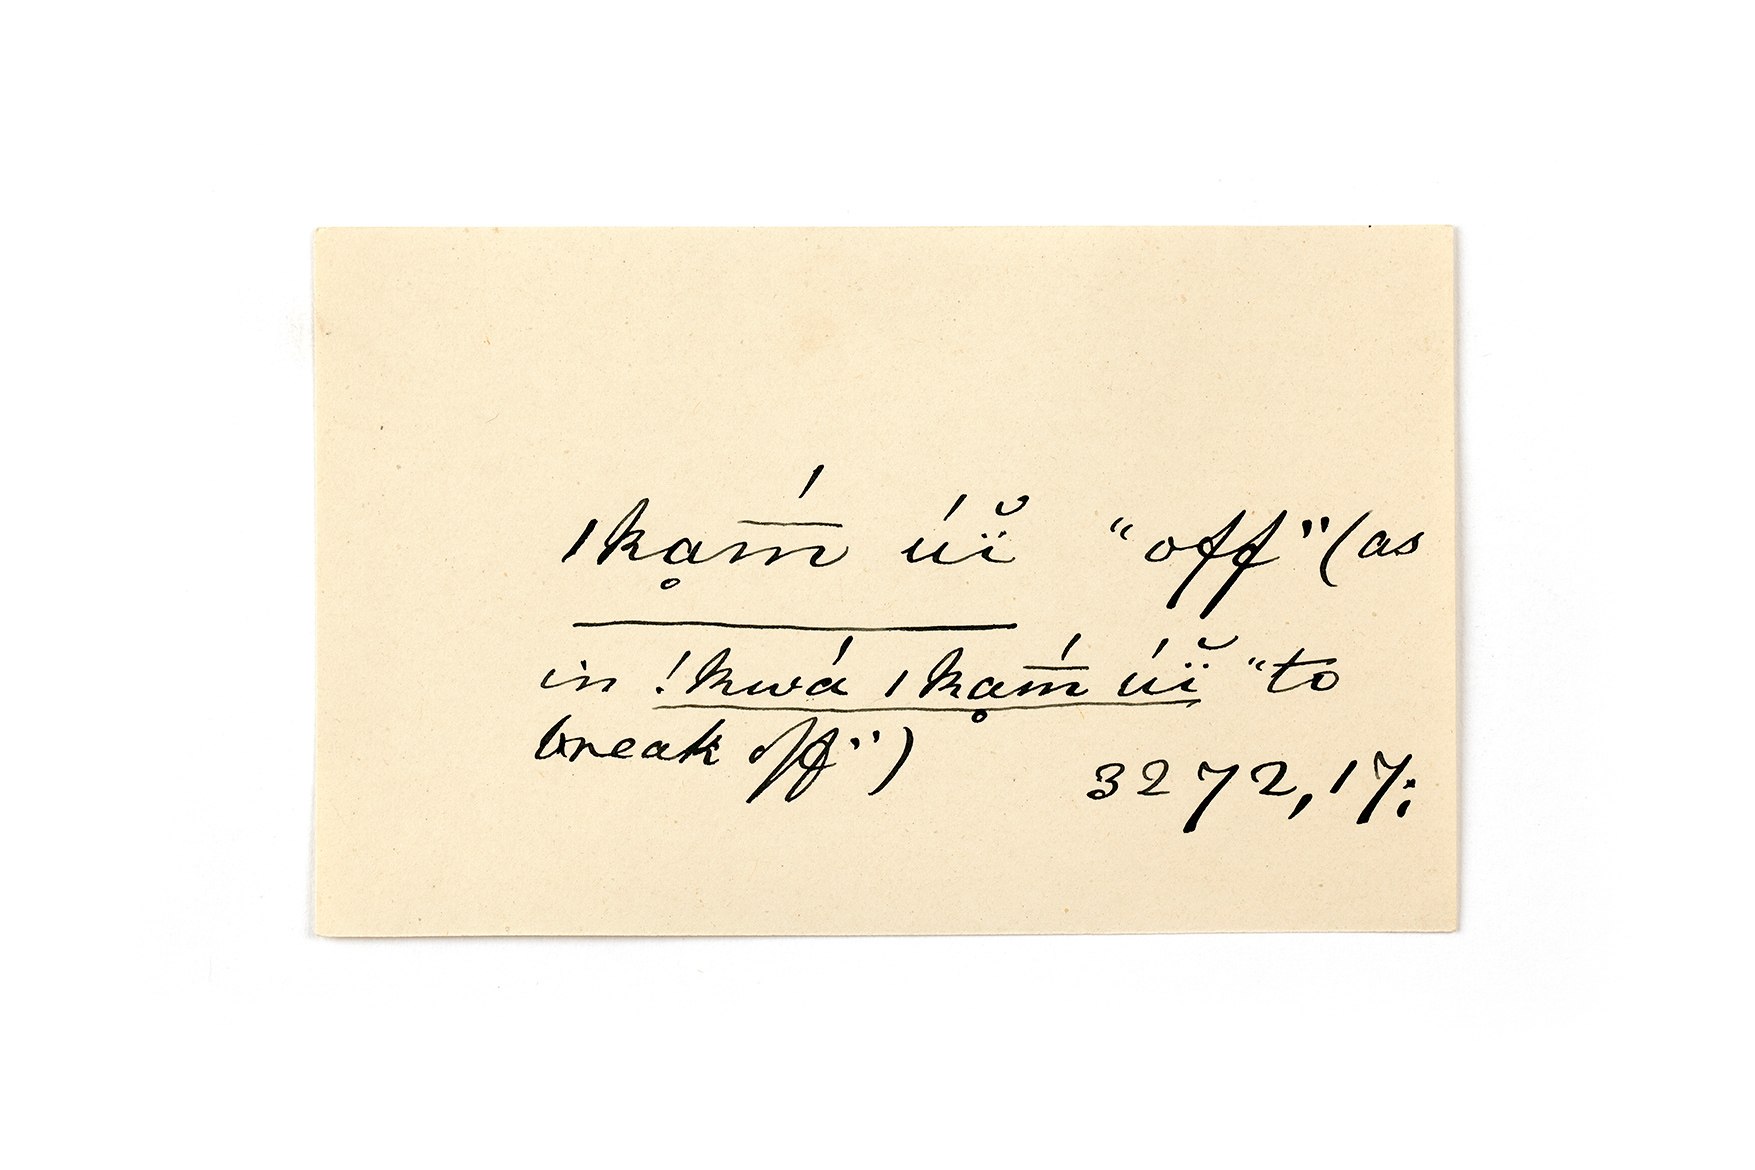 ǀkḁm̄́ úï̆ “off” (as
in !kwá ǀkḁm̄́ úï̆ “to
break off”)
3272, 17;